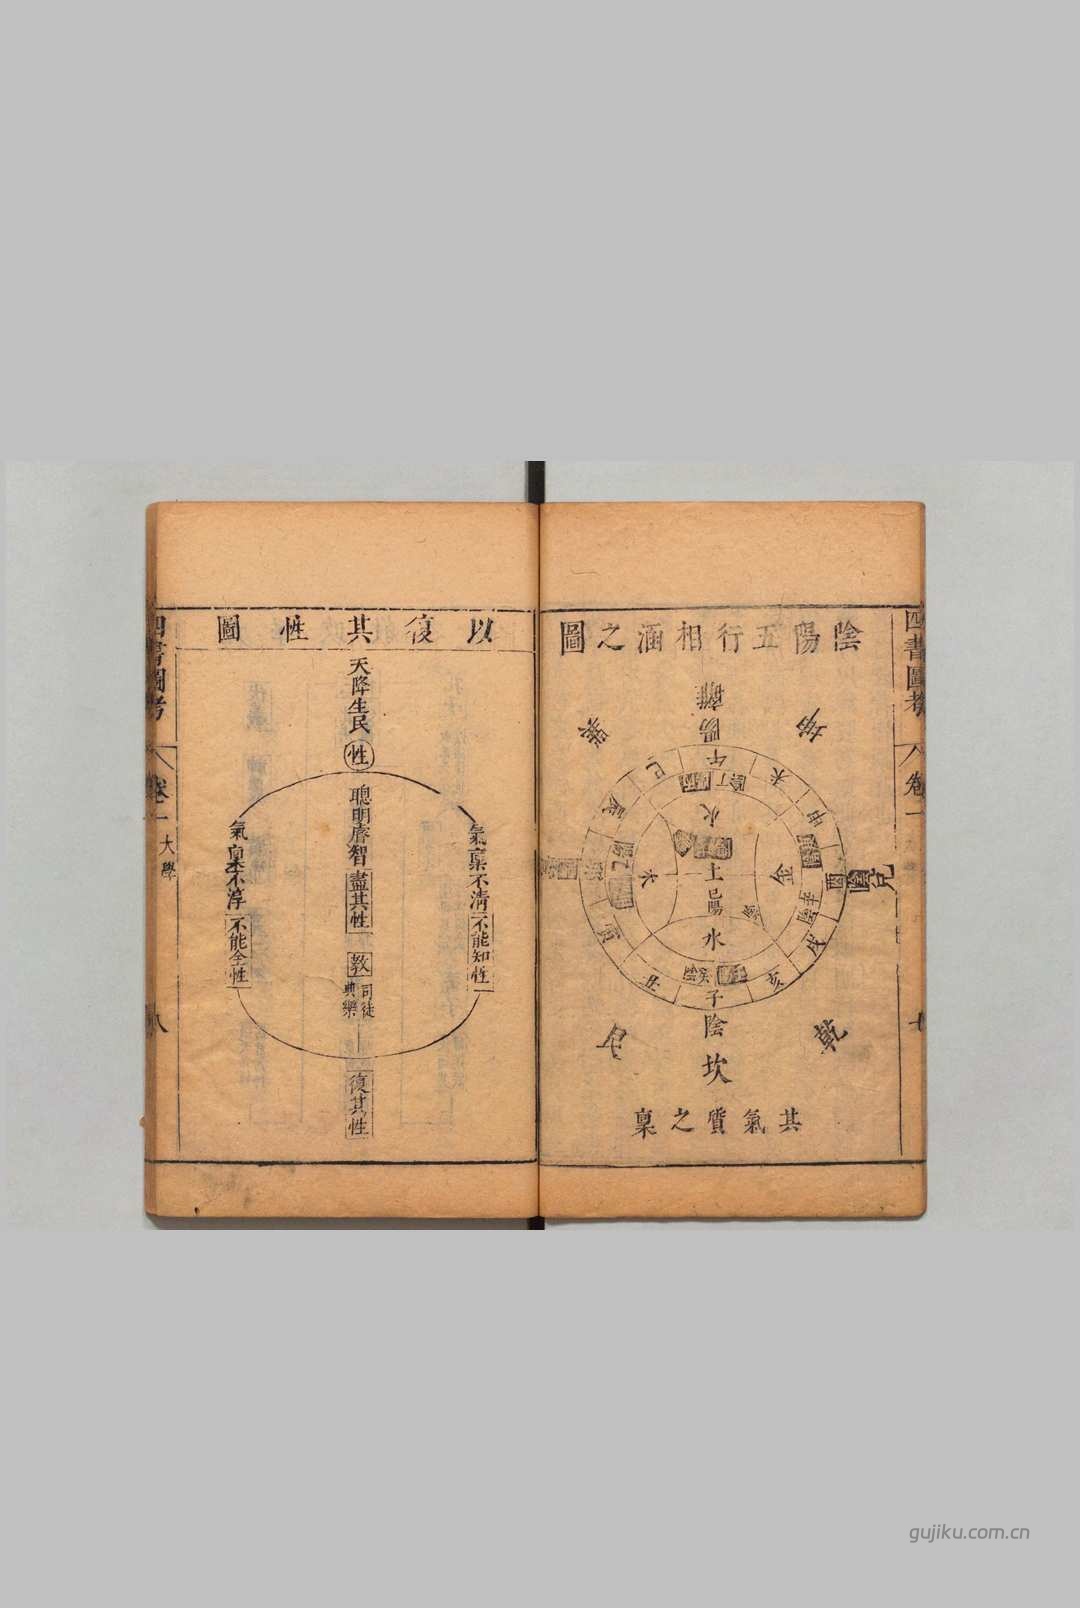 四書圖考
卷一
七
陰陽五行相涵之圖
離
陽
午
坤
未
申
兌
酉
戌
乾
亥
坎
陰
子
丑
艮
巳
巽
火
土
己陽
水
金
木
其氣質之稟
以復其性圖
天降生民
性
聰明睿智
盡其性
教
司徒
典樂
復其性
氣稟不清
不能知性
氣稟不淳
不能全性
四書圖考
卷一
大學
八
gujiku.com.cn